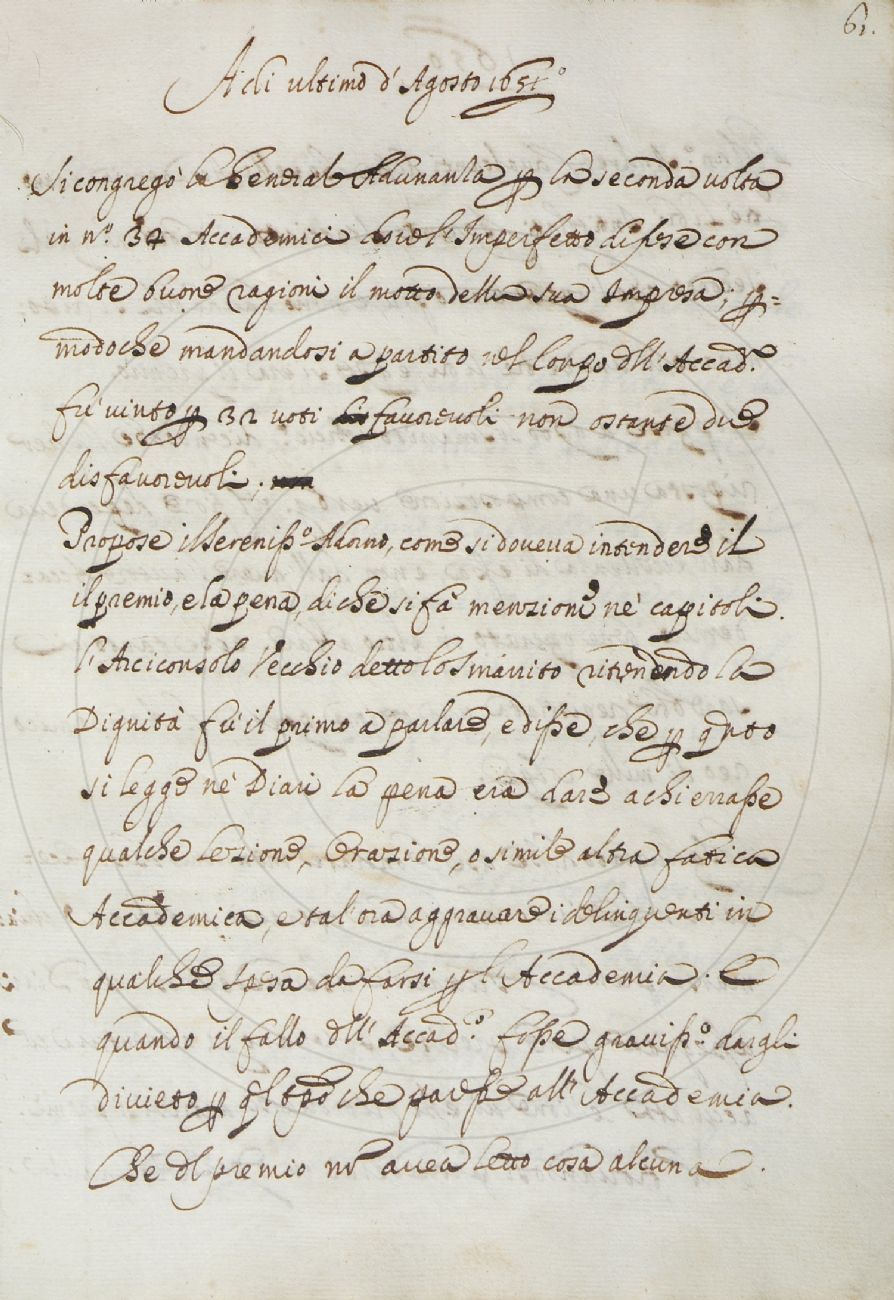 61.
A di ultimo d'Agosto 1651.º
Si congregò la General Adunanza p la seconda volta
in nº. 34 Accademici dove l'Imperfetto difese con
molte buone ragioni il motto della sua Impresa; p=
modoche mandandosi a partito nel Corpo dll' Accad.ª
fu vinto p 32 voti favorevoli non ostante due
disfavorevoli.
Propose il Sereniss.º Adorno, come si doveva intendere il
il premio, e la pena, di che si fa menzione ne' capitoli.
l'Arciconsolo Vecchio detto lo Smarrito ritenendo la
Dignità fu il primo a parlare, e disse, che p qnto
si legge ne' Diari la pena era dare a chi errasse
qualche lezione, Orazione, o simile altra fatica
Accademica, e tal'ora aggravare i delinquenti in
qualche spesa da farsi p l'Accademia. E
quando il fallo dll' Accad.º fosse graviss.º dargli
divieto p ql tpo che paresse all' Accademia.
Che dl premio nō avea letto cosa alcuna.